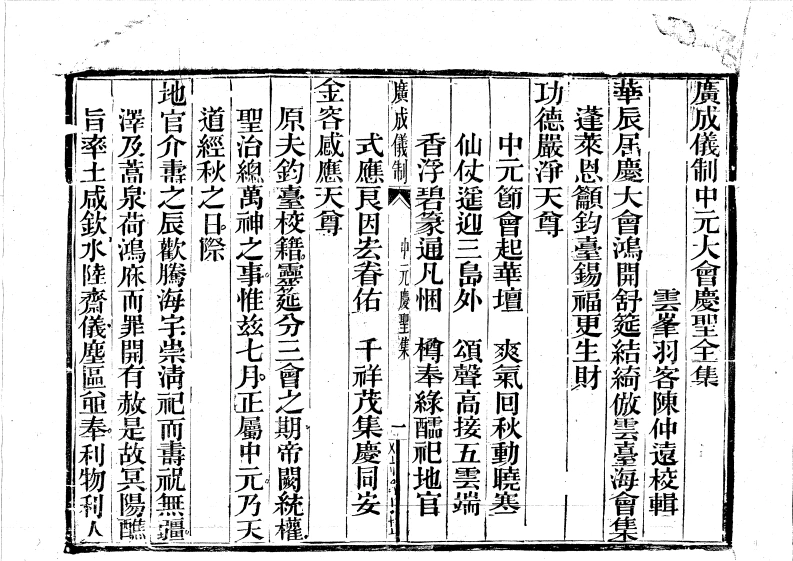 廣成儀制中元大會慶聖全集
雲峯羽客陳仲遠校輯
華辰居慶大會鴻開舒筵結綺倣雲臺海會集
蓬萊恩籲鈞臺錫福更生財
功德嚴淨天尊
中元節會起華壇　爽氣回秋動曉寒
仙仗遙迎三島外　頌聲高接五雲端
香浮碧篆通凡悃　樽奉綠醽祀地官
式應良因去眷佑　千祥茂集慶同安
廣成儀制　中元慶聖集　一
金容感應天尊
原夫鈞臺校籍靈筵分三會之期帝闕統權
聖治總萬神之事惟茲七月正屬中元乃天
道經秋之日際
地官介壽之辰歡騰海宇崇清祀而壽祝無疆
澤及蒿泉荷鴻庥而罪開有赦是故冥陽醮
旨率土咸欽水陸齋儀塵區並奉利物利人